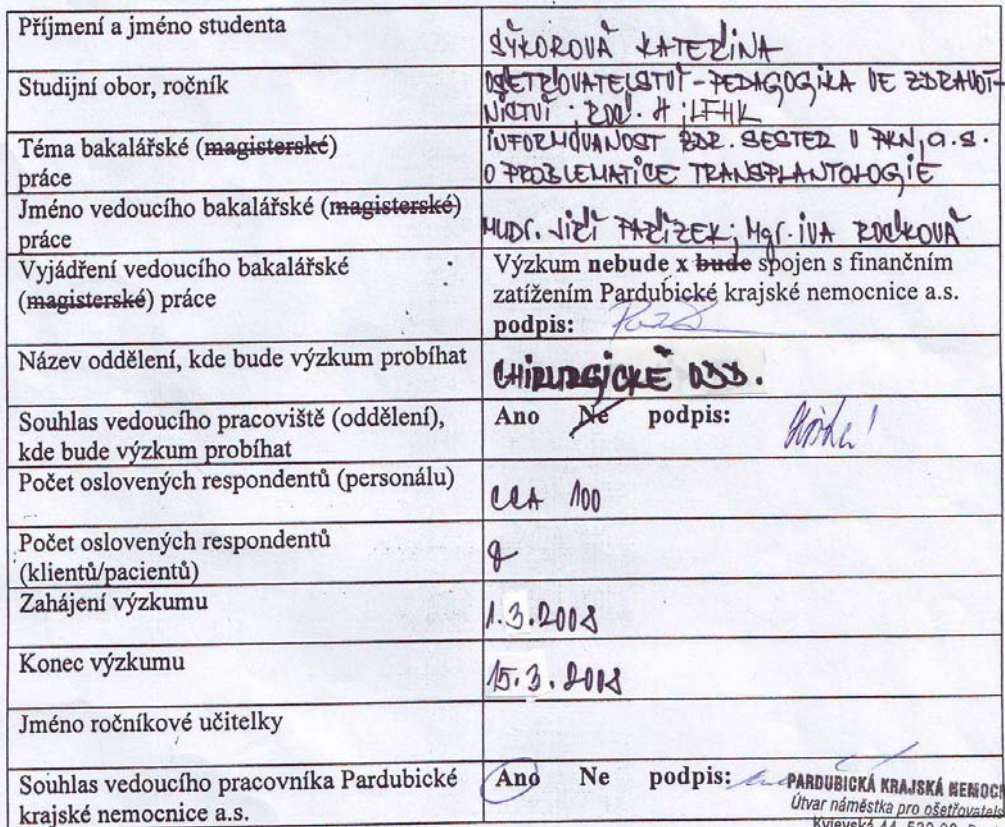 Příjmení a jméno studenta
SÝKOROVÁ KATEŘINA
Studijní obor, ročník
OŠETŘOVATELSTVÍ - PEDAGOGIKA VE ZDRAVOT-
NICTVÍ; ROČ. 4; LFHK
Téma bakalářské (magisterské)
práce
INFORMOVANOST ZDR. SESTER V PKN, a.s.
O PROBLEMATICE TRANSPLANTOLOGIE
Jméno vedoucího bakalářské (magisterské)
práce
MUDr. JIŘÍ PAŘÍZEK; Mgr. IVA ROČKOVÁ
Vyjádření vedoucího bakalářské
(magisterské) práce
Výzkum nebude x bude spojen s finančním
zatížením Pardubické krajské nemocnice a.s.
podpis:
Název oddělení, kde bude výzkum probíhat
CHIRURGICKÉ ODD.
Souhlas vedoucího pracoviště (oddělení),
kde bude výzkum probíhat
Ano Ne podpis:
Počet oslovených respondentů (personálu)
CCA 100
Počet oslovených respondentů
(klientů/pacientů)
Zahájení výzkumu
1.3.2008
Konec výzkumu
15.3.2008
Jméno ročníkové učitelky
Souhlas vedoucího pracovníka Pardubické
krajské nemocnice a.s.
Ano Ne podpis:
PARDUBICKÁ KRAJSKÁ NEMOCN
Útvar náměstka pro ošetřovatels
Kyjevská 44, 532 03